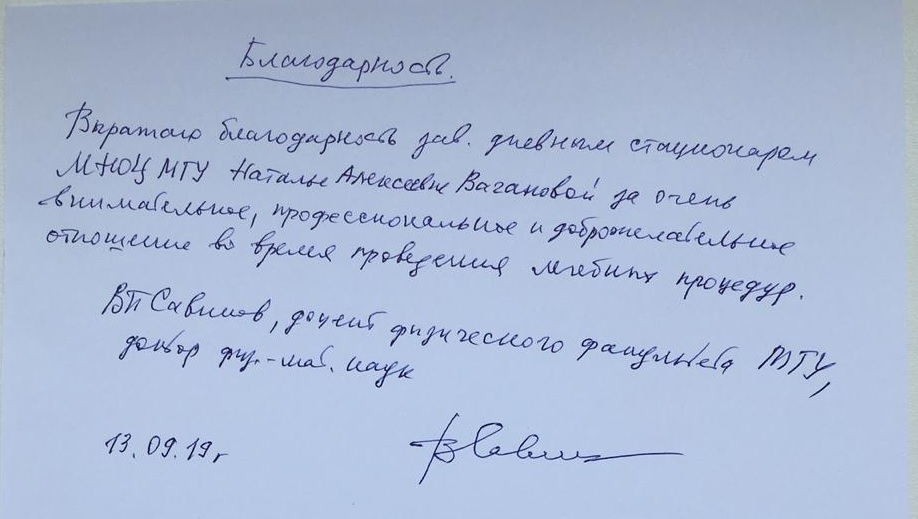 Благодарность.
Выражаю благодарность зав. дневным стационаром
МНОЦ МГУ Наталье Алексеевне Вагановой за очень
внимательное, профессиональное и доброжелательное
отношение во время проведения лечебных процедур.
ВП Савинов, доцент физического факультета МГУ,
доктор физ.-мат. наук
13.09.19г